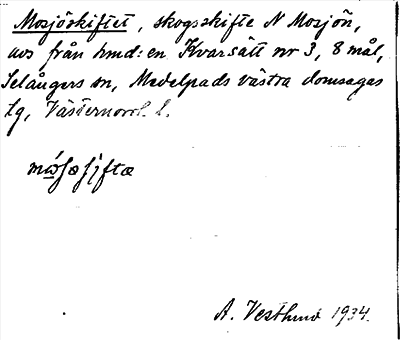 Mosjöskiftet, skogsskifte N Mosjön,
avs från hmd: en Kvarsätt nr 3, 8 mål,
Selångers sn, Medelpads västra domsagas
tg, Västernorrl. l.
A. Vestlund 1934.